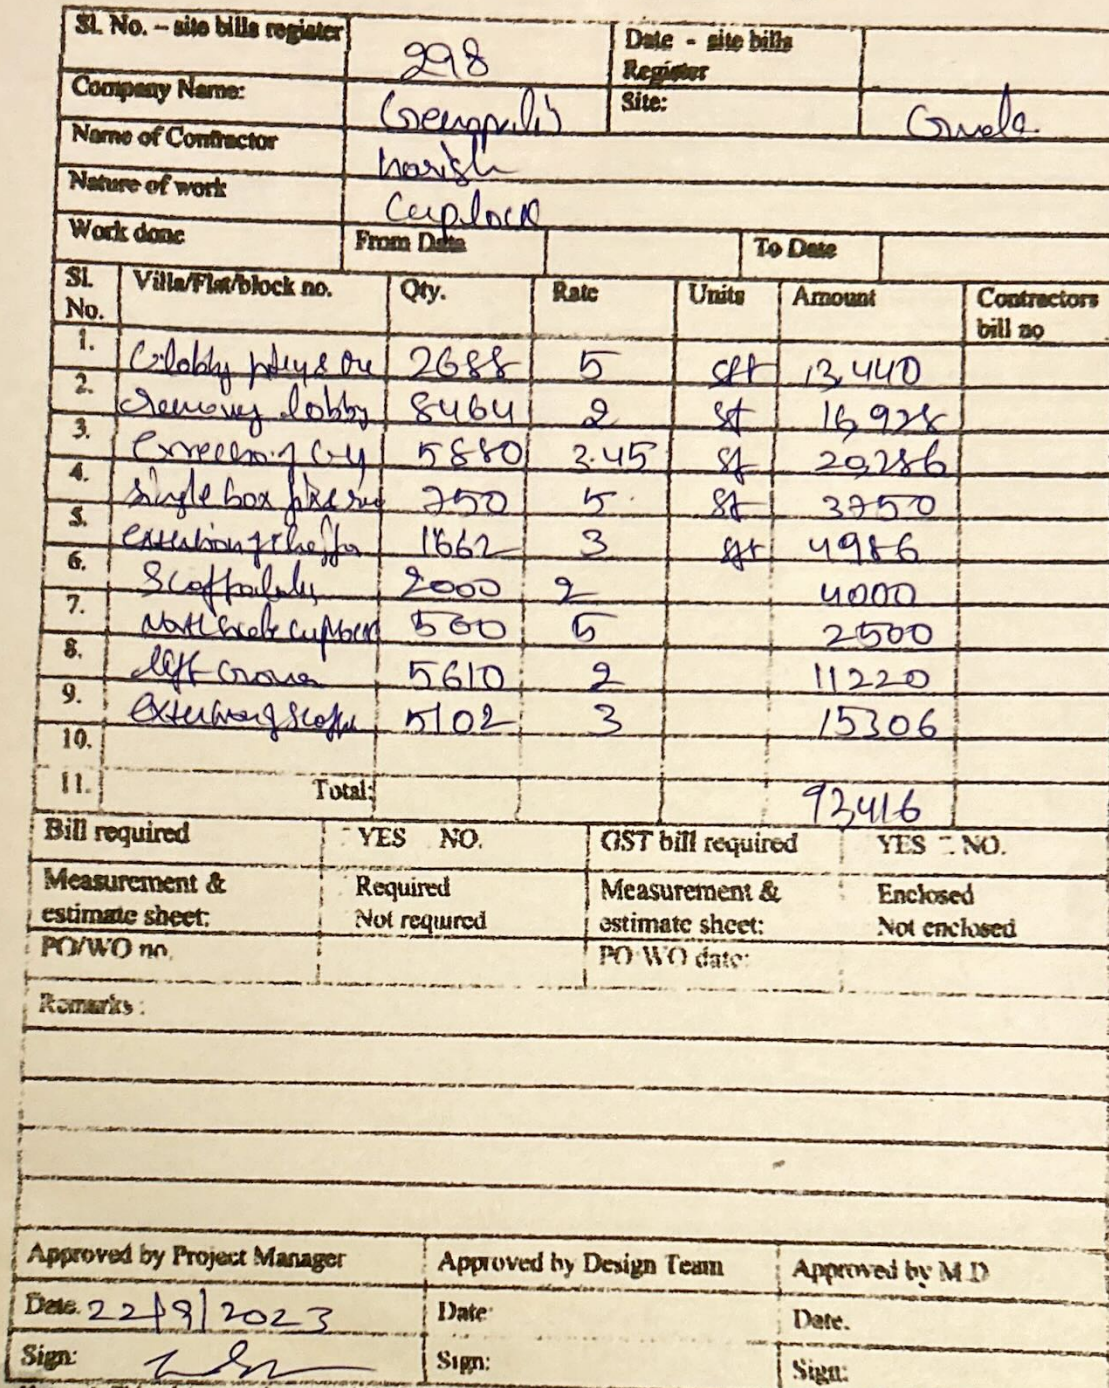 Sl. No. – site bills register 298 Date - site bills Register
Company Name: Greenpolis Site:
Name of Contractor Harish
Nature of work Cuplock
Work done From Date To Date
Sl. No. Villa/Flat/block no. Qty. Rate Units Amount Contractors bill no
1. lobby 2688 5 sft 13,440
2. lobby 8464 2 sft 16,928
3. 5880 3.45 sft 20,286
4. single box 750 5 sft 3750
5. 1662 3 sft 4986
6. 2000 2 4000
7. 500 5 2500
8. 5610 2 11220
9. 5102 3 15306
10.
11. Total: 92,416
Bill required YES NO. GST bill required YES - NO.
Measurement & estimate sheet: Required Not required Measurement & estimate sheet: Enclosed Not enclosed
PO/WO no. PO/WO date:
Remarks :
Approved by Project Manager Approved by Design Team Approved by M.D
Date. 22/9/2023 Date: Date.
Sign: Sign: Sign: